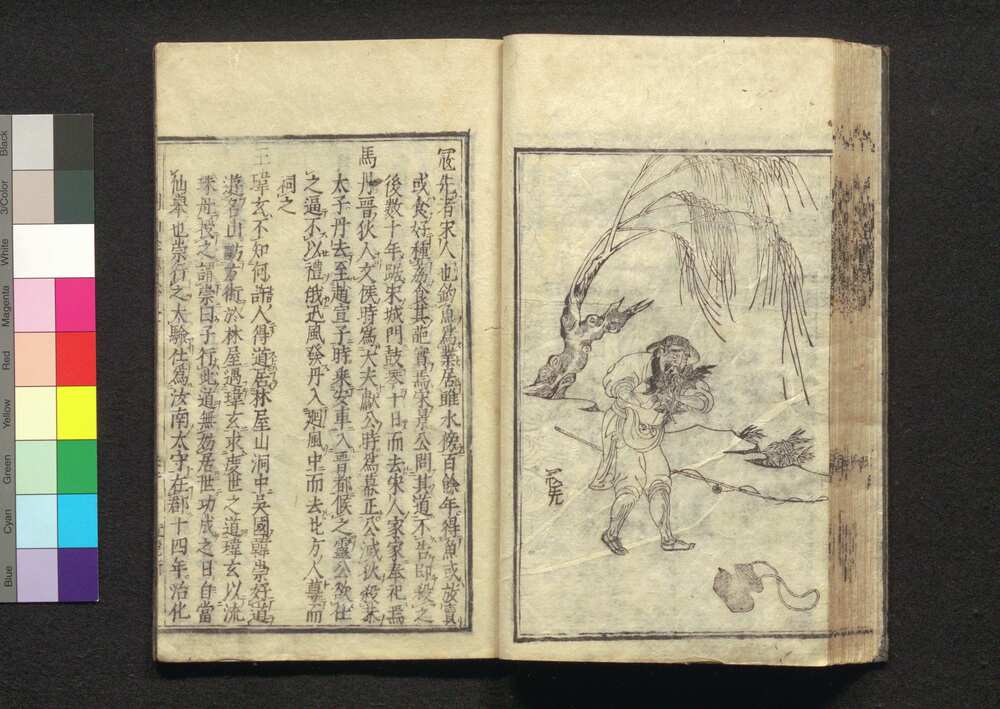 冦先
冦先者宋人也釣魚爲業居雎水傍百餘年得魚或放賣
或食好種荔食其葩實焉宋景公問其道不告即殺之
後数十年踞宋城門鼓琴十日而去宋人家家奉祀焉
馬丹晋狄人文侯時爲大夫獻公時爲幕正公滅狄殺恭
太子丹去至趙宣子時乗安車入晋都候之靈公欲仕
之逼不以禮俄迅風發丹入廻風中而去北方人尊而
祠之
王瑋玄不知何許人得道居林屋山洞中吳國韓崇好道
遊名山訪方術於林屋遇瑋玄求度世之道瑋玄以流
珠丹授之謂崇曰子行此道無妨居世功成之日自當
仙舉也崇行之大驗仕爲汝南太守在郡十四年治化
Black
3/Color
White
Magenta
Red
Yellow
Green
Cyan
Blue